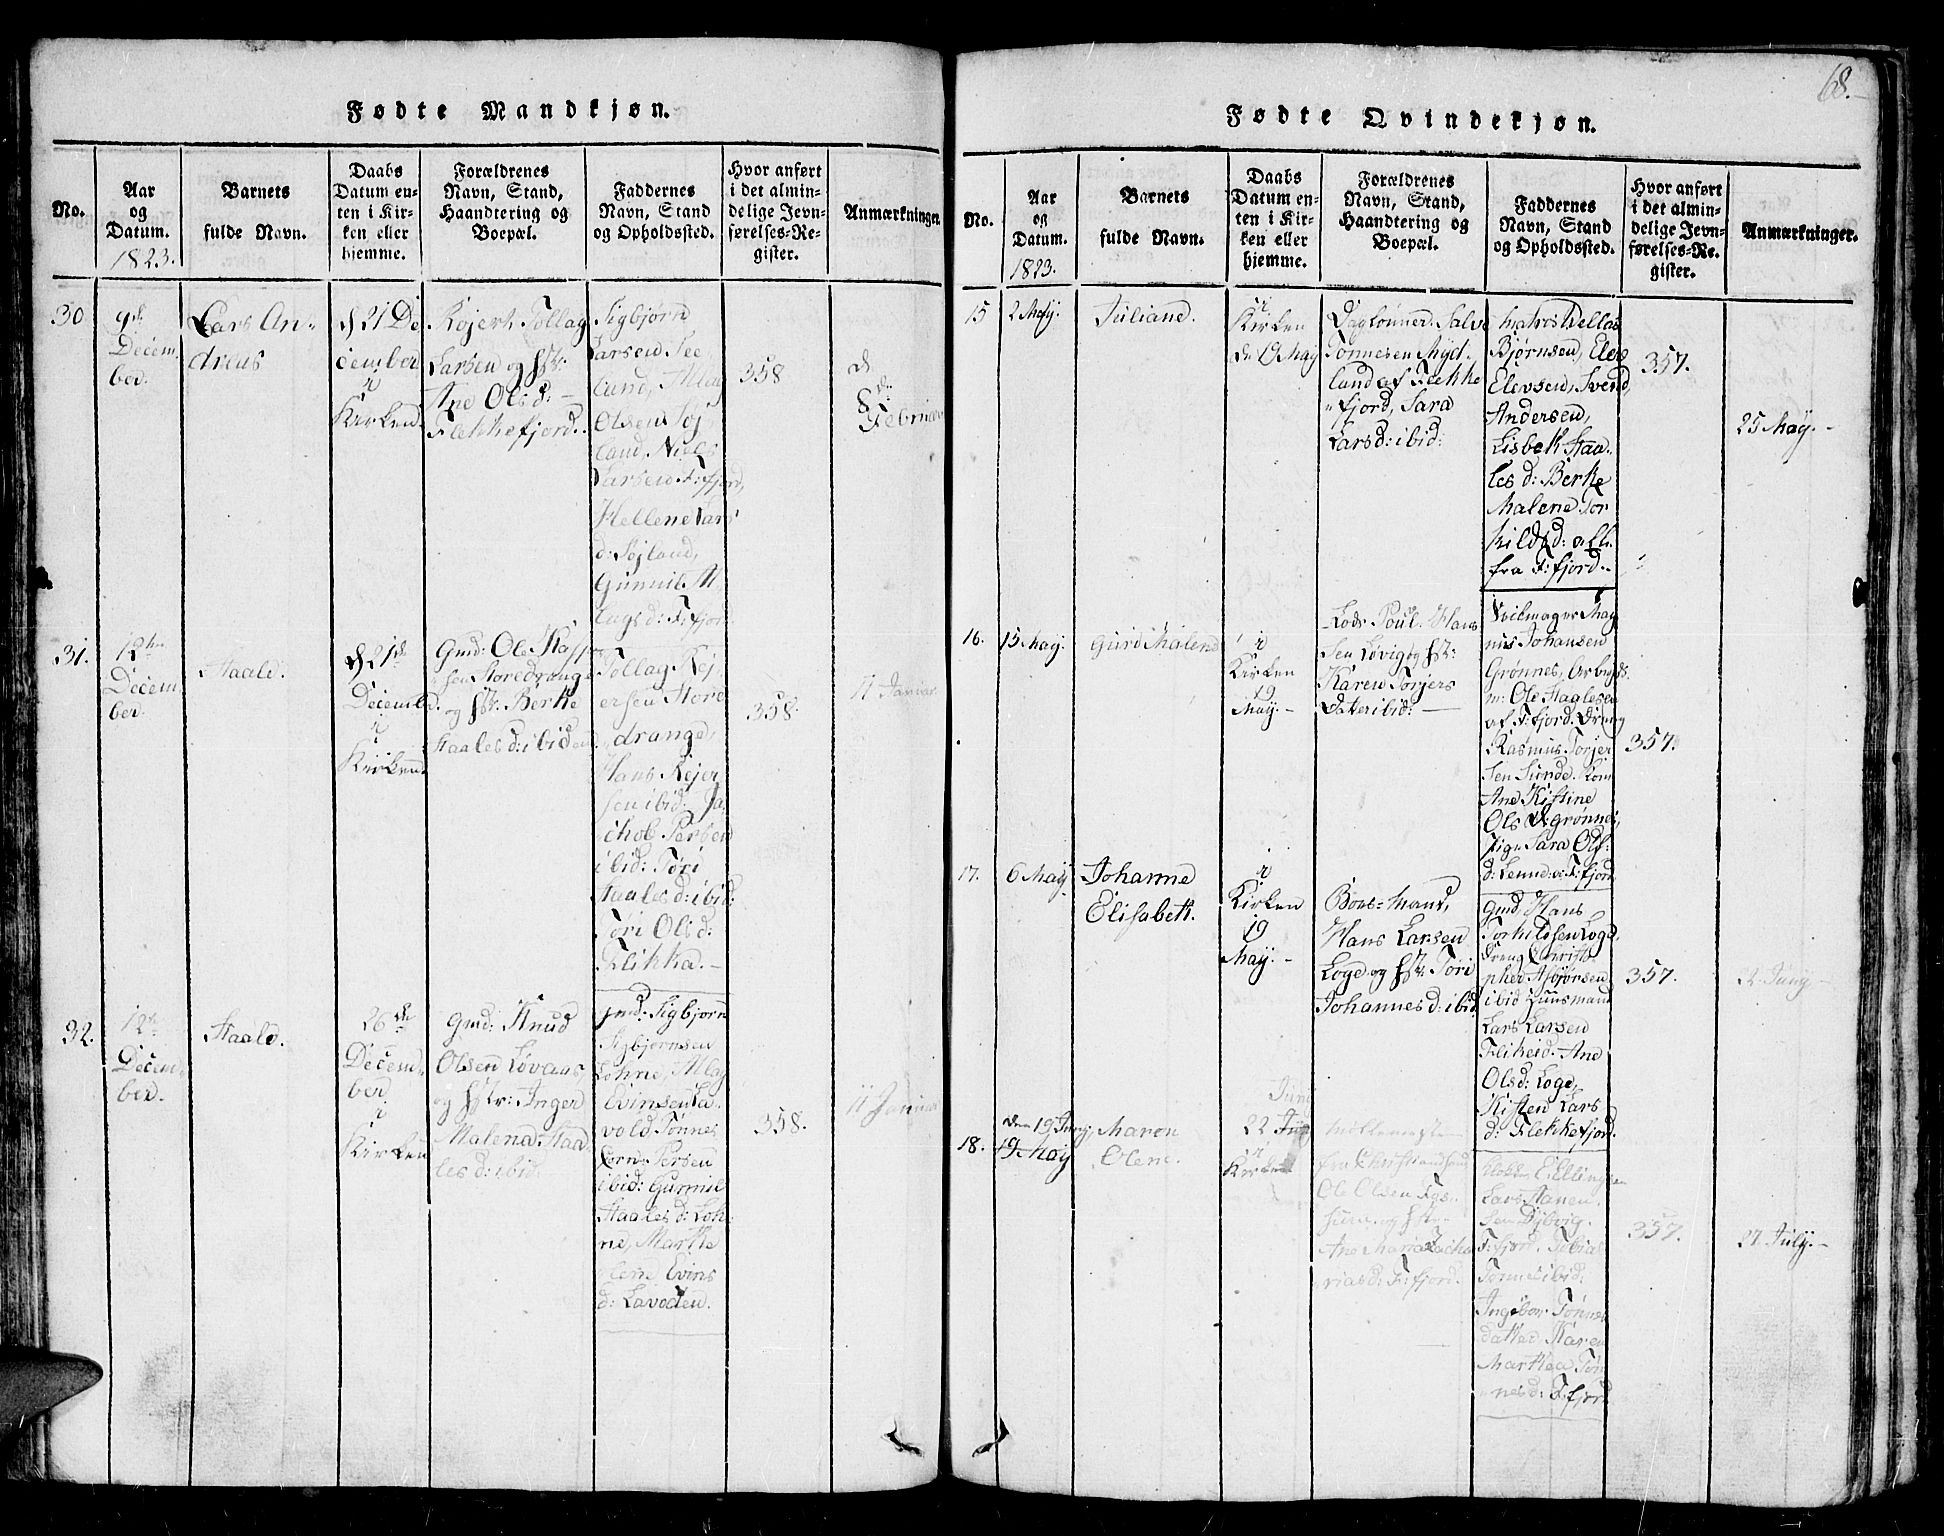 68.
Fødte Mandkjøn.
No.
Aar
og
Datum.
1823.
Barnets
fulde Navn.
Daabs
Datum en-
ten i Kir-
ken eller
hjemme.
Forældrenes
Navn, Stand,
Haandtering og
Boepæl.
Faddernes
Navn, Stand
og Opholdssted.
Hvor anført
i det almin-
delige Jevn-
førelses-Re-
gister.
Anmærkninger.
30
9de
Decem-
ber.
Lars An-
dreas
d 21 De
cember
i
Kirken.
Tollag
Larsen og hstr:
Ane Olsd: -
Flekkefjord.
Sigbjørn
Larsen See
land, Allag
Olsen Søj
land, Niels
Larsen F:fjord,
Hellene Lars
d: Søjland,
Gunnil Al
lags d: F:fjor.
358
d
8de
Februar
31.
12te
Decem-
ber.
Staale.
d 21de
Decemb.
i
Kirken.
Gmd: Ole
sen Storedrange
og hstr: Berte
Staales d: ibid
Tollag Rej
ersen Store
drange,
Hans Rejer
sen ibid: Ja
chob Persen
ibid: Tøri
Staales d: ibid:
Tøri Olsd:
Flikka. -
358.
11 Januar
32.
12te
Decem-
ber.
Staale.
26de
Decem-
ber
i
Kirken
Gmd: Knud
Olsen Løvaas,
og hstr: Inger
Malena Staa
les d: ibid.
gmd: Sigbjørn
Sigbjørnsen
Lohne, Allag
Evinsen La
vold Tønnes
Corns Persen
ibid: Gunnil
Staales d: Loh
ne, Marthe
lene Evins
d: Lavolen.
358.
11 Januar
Fødte Qvindekjøn.
No.
Aar
og
Datum.
1823.
Barnets
fulde Navn.
Daabs
Datum en-
ten i Kir-
ken eller
hjemme.
Forældrenes
Navn, Stand,
Haandtering og
Boepæl.
Faddernes
Navn, Stand
og Opholdssted.
Hvor anført
i det almin-
delige Jevn-
førelses-Re-
gister.
Anmærkninger.
15
2 May.
Juliane.
i
Kirken
d 19 May
Daglønner Salve
Tønnesen Myd-
land af Flekke
fjord, Sara
Lars d: ibid:
Bjørnsen, Elevs
Elevsen, Svend
Andersen,
Lisbeth Staa-
les d: Berte
Malene Tor
kilds d: alle
fra F:fjord.
357.
25 May. -
16.
15 May.
Gurd Malene
i
Kirken
19
May. -
Lods Poul Hans
sen Løvig og hstr:
Karen Torjers
datter ibid:
May
nus Johansen
Grønnes, Arbejds
m: Ole Staalesen
af F:fjord. Dreng
Rasmus Torjer
sen Sunde. Kone
Ane Kistine
Ols d: Grønnes,
Pige Sara Ols
d: F:fjord
357.
17.
6 May
Johanne
Elisabeth.
i
Kirken
19
May. -
Boes-Mand,
Hans Larsen
Loge og hstr: Tøri
Johannes d: ibid.
gmd, Hans
Torkildsen Loge
Dreng Christo-
pher Asbjørsen
ibid Huusmand
Lars Larsen
Flikeid. Ane
Olsd: Loge,
Kisten Lars
d: Flekkefjord.
357.
2 Juny -
18.
den 19 Juny
19 May
Maren
Olene.
Juny
22 Juny
i
Kirken
fra Christiansand
Ole Olsen
og hstr:
Ane Maria Zacha
rias d: F:fjord.
Ellingsen
Lars Hanen
sen Dybvig.
F:fjord. Tobias
Tønnes ibid:
Ingebor Tønnes
datter, Karen
Marthea Tøn
nes d: F:fjord
357.
27 July. -